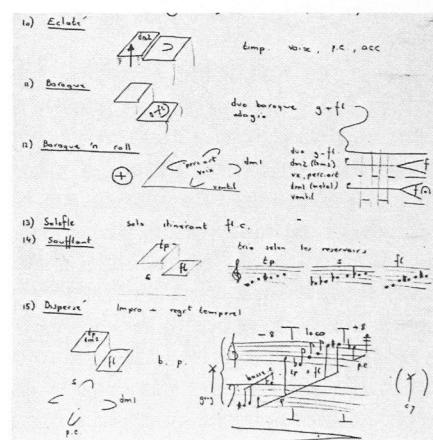 10) Eclaté
dm2
timp. voix, p.c., acc
11) Baroque
g-fl
duo baroque g+fl
adagio
12) Baroque 'n roll
perc.art
voix
dm1
ventil
duo g-fl
dm2 (tms)
vx, perc.art
dm1 (metal)
ventil
13) Solofle
solo itinérant fl.c.
14) Soufflant
tp
s
fl
trio selon les reservoirs
tp s fl
15) Dispersé
Impro + regst temporel
tp
tms2
fl
b. p.
s
dm1
p.c.
-8 loco +8
tp + fl
p.c
gng